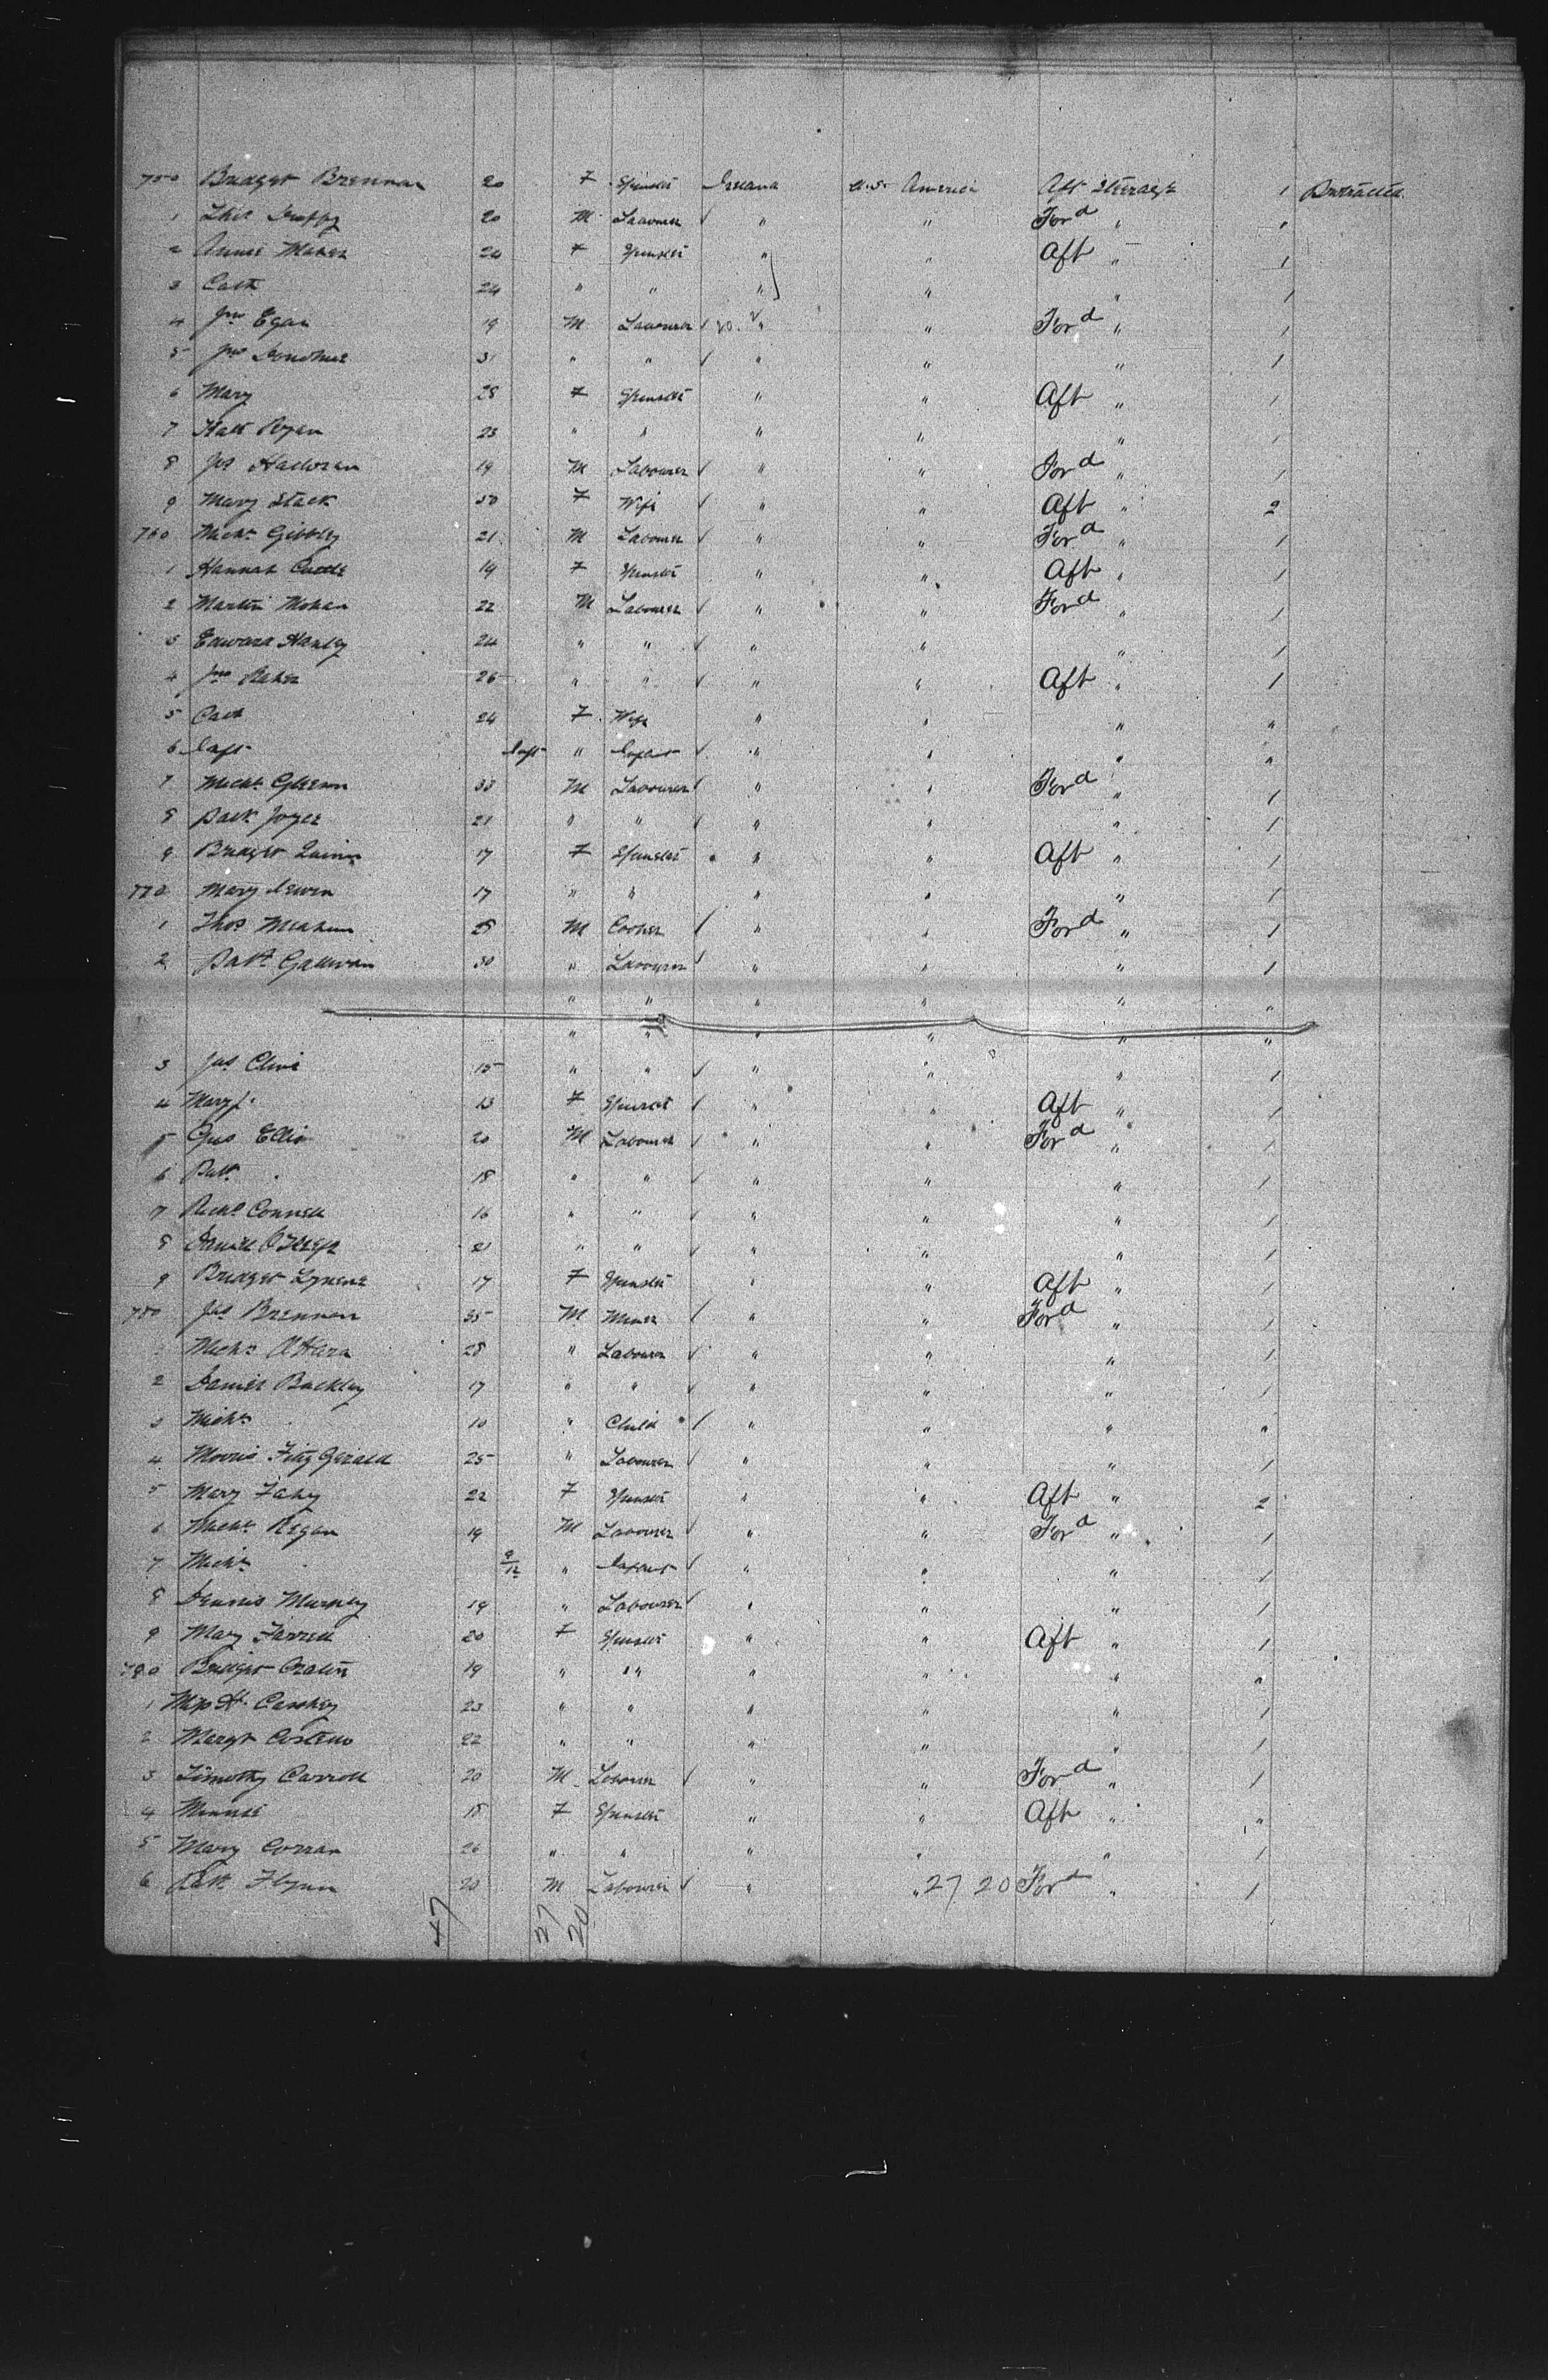 750 Bridget Brennan 20 F Spinster Ireland U.S. America Aft Steerage 1 Protracted
1 20 M Labourer √ " " Ford " "
2 Annie Maher 24 F Spinster " " Aft " 1
3 Cath 24 " " " " " 1
4 Jno Egan 19 M Labourer √ " " Ford " 1
5 Jno Donohue 31 " " √ " " " 1
6 Mary 28 F Spinster " " Aft " 1
7 Kate Ryan 23 " " " " " 1
8 Jas Halloran 19 M Labourer √ " " Ford " 1
9 Mary Stack 50 F Wife √ " " Aft " 2
760 Michl Gibbly 21 M Labourer √ " " Ford " 1
1 Hannah 19 F Spinster " " Aft " 1
2 Martin Mohan 22 M Labourer √ " " Ford " 1
3 Edward Hanley 24 " " √ " " " 1
4 Jno Maher 26 " " √ " " Aft " 1
5 Cath 24 F Wife " " " "
6 Inft Inft " Infant √ " " " "
7 Michl Gleeson 33 M Labourer √ " " Ford " 1
8 Patk Joyce 21 " " √ " " " 1
9 Bridget Quinn 17 F Spinster " " Aft " 1
770 Mary 17 " " " " " 1
1 Thos Meahan 28 M Cooper √ " " Ford " 1
2 Patk Gallivan 30 " Labourer √ " " " 1
" " " " " "
" " " " " "
3 Jas Cline 15 " " √ " " " 1
4 Mary J. 13 F Spinster √ " " Aft " 1
5 Ellis 20 M Labourer √ " " Ford " 1
6 Patk 18 " " √ " " " 1
7 Richd Connell 16 " " √ " " " 1
8 Daniel O'Keefe 21 " " √ " " " 1
9 Bridget 17 F Spinster " " Aft " 1
780 Jas Brennan 35 M Miner √ " " Ford " 1
Michl O'Hara 28 " Labourer √ " " " 1
2 Daniel Buckley 17 " " √ " " " 1
3 Michl 10 " Child √ " " " "
4 Morris Fitz Gerald 25 " Labourer √ " " " 1
5 Mary Fahy 22 F Spinster " " Aft " 2
6 Michl Regan 19 M Labourer √ " " Ford " 1
7 Michl 9/12 " Infant √ " " " 1
8 Dennis Murphy 19 " Labourer √ " " " 1
9 Mary Farrell 20 F Spinster " " Aft " 1
790 Bridget 19 " " " " " "
1 Miss H. Caskey 23 " " " " " 1
2 Margt Costello 22 " " " " " 1
3 Timothy Carroll 20 M Labourer √ " " Ford " 1
4 Minnie 18 F Spinster " " Aft " "
5 Mary Corran 26 " " " " " 1
6 Patk Flynn 20 M Labourer √ " " 27 20 Ford " 1
47 27 20